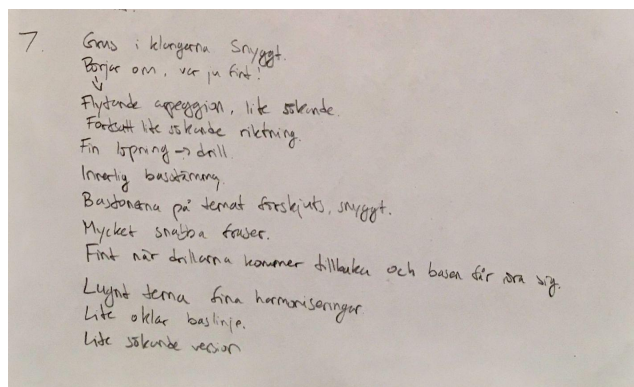 7. Grus i klangerna snyggt.
Börjar om, var ju fint!
↓
Flytande arpeggion, lite sökande.
Fortsatt lite sökande riktning.
Fin löpning → drill.
Innerlig basstämning.
Bastonerna på temat förskjuts, snyggt.
Mycket snabba fraser.
Fint när drillarna kommer tillbaka och basen får röra sig.
Lugnt tema fina harmoniseringar
Lite oklar baslinje.
Lite sökande version